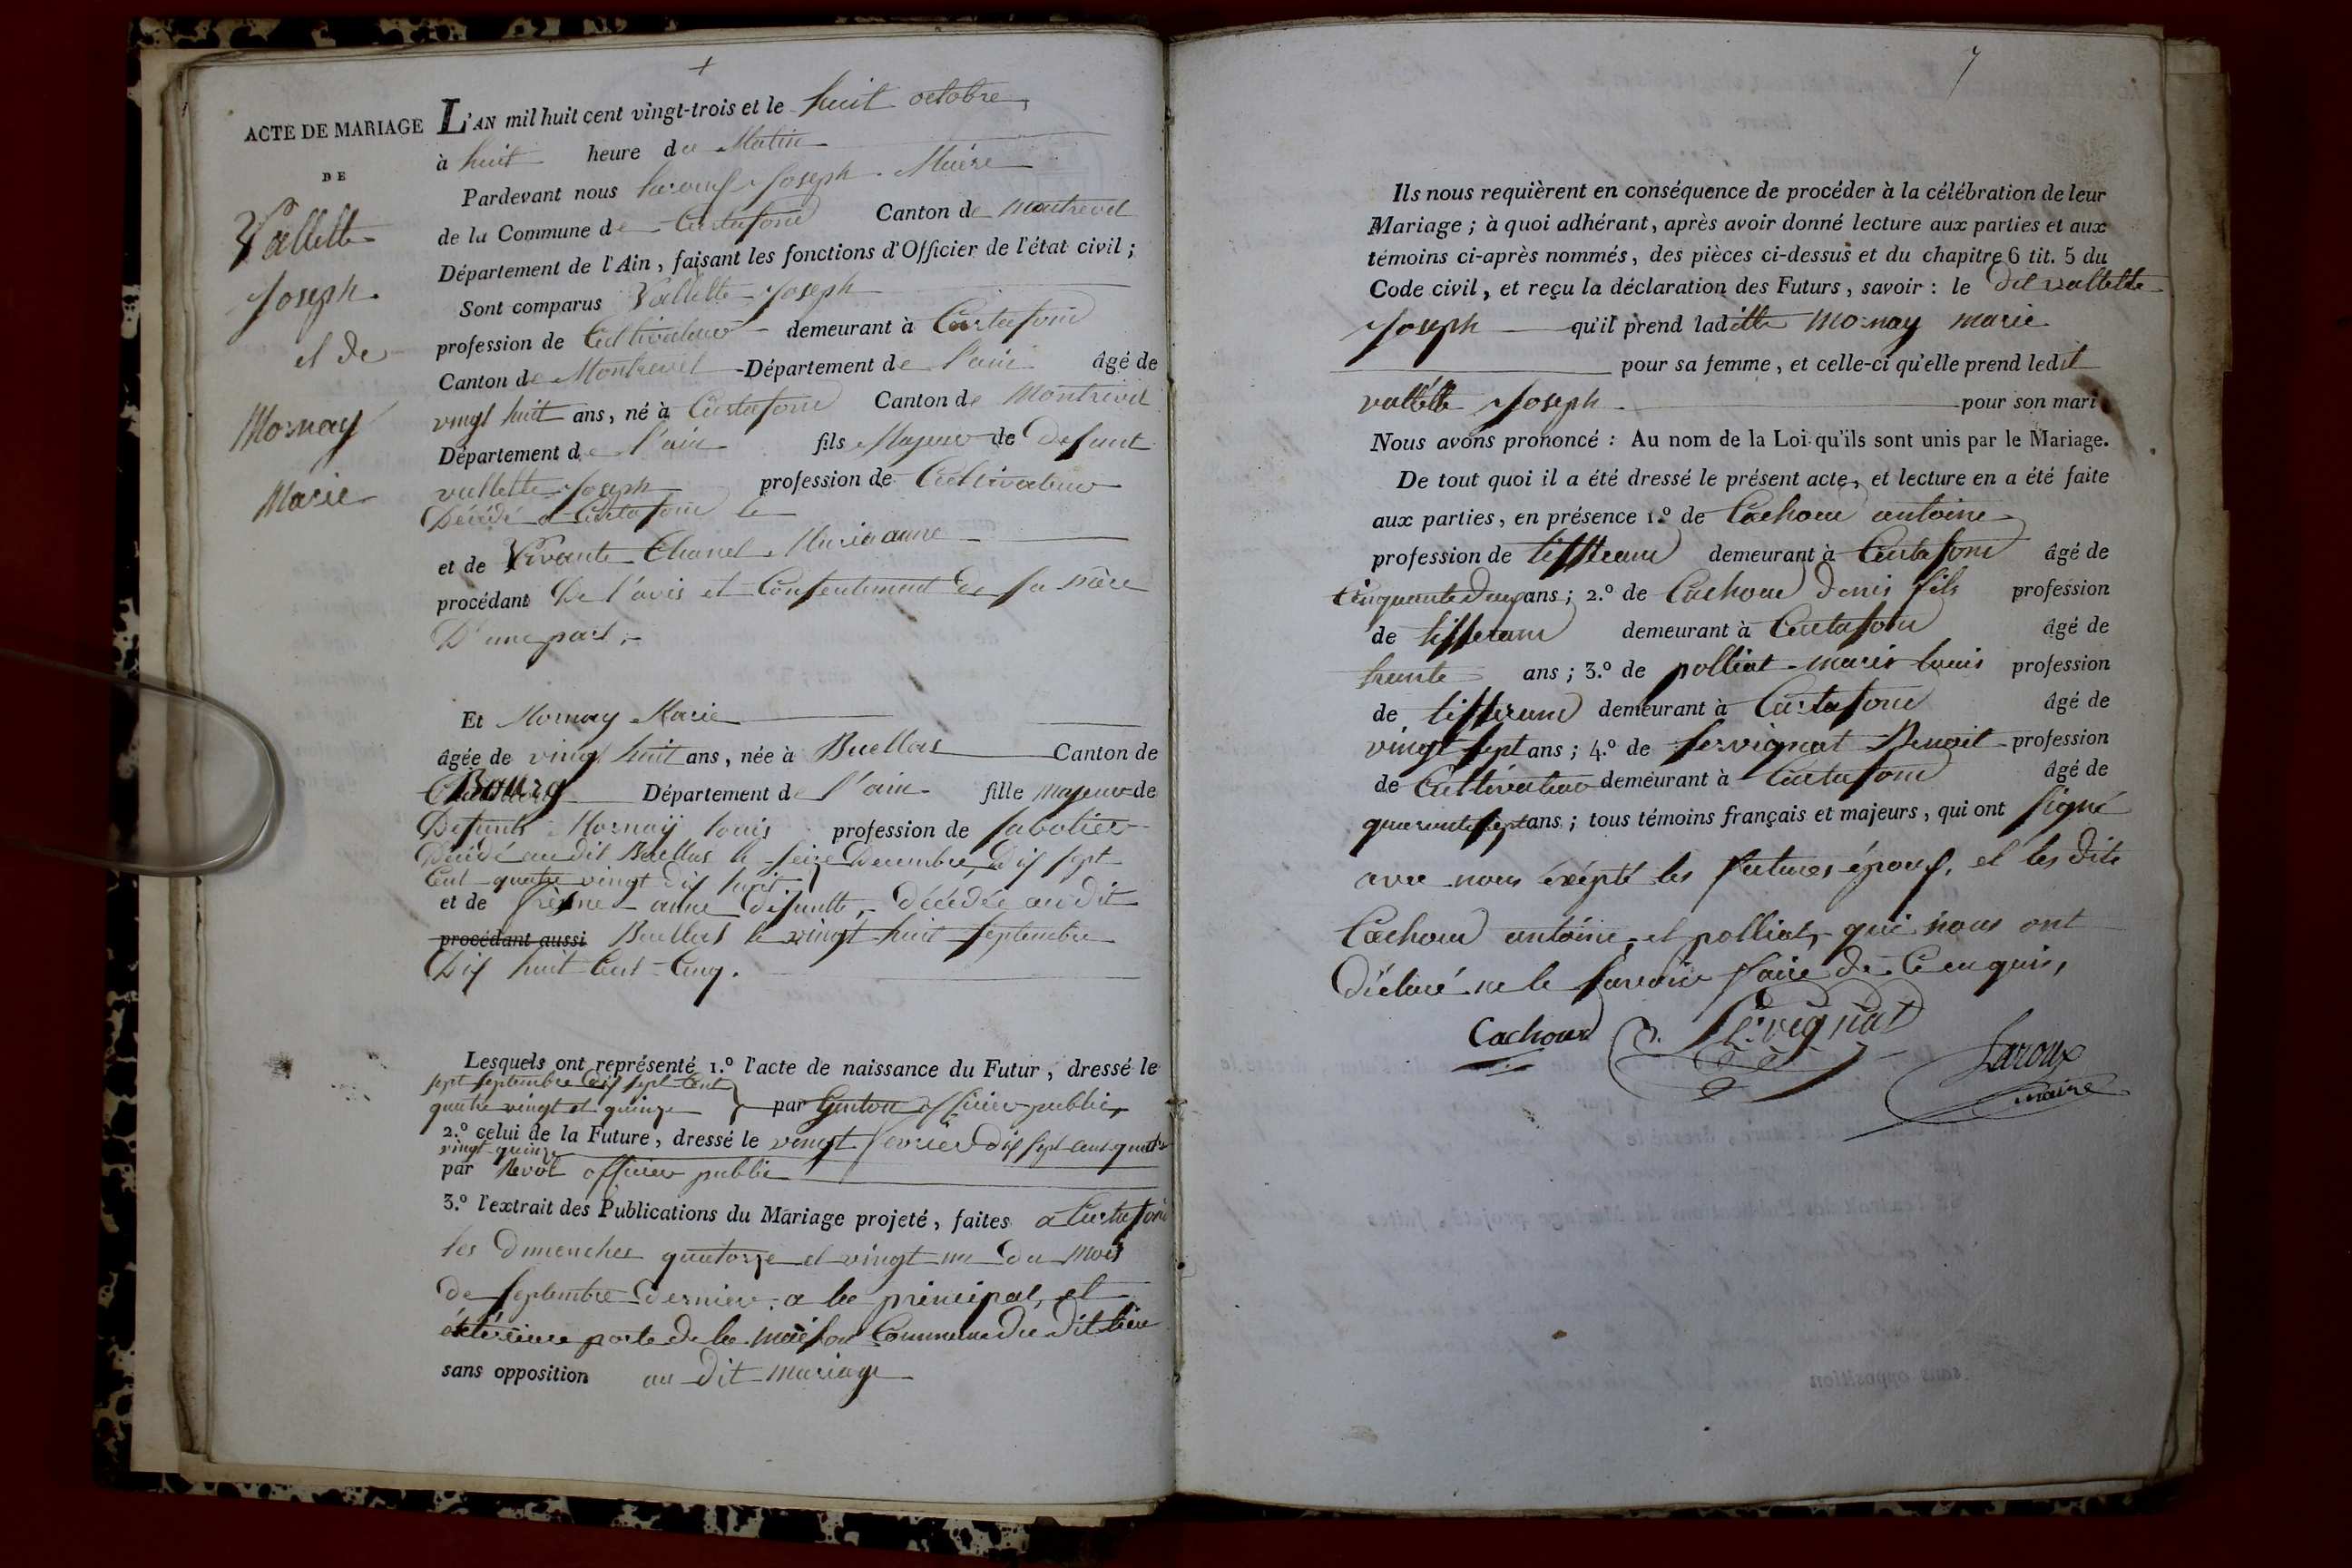 +
ACTE DE MARIAGE
DE
Vallette
Joseph
et de
Mornay
Marie
L'AN mil huit cent vingt-trois et le huit octobre,
à huit heure du Matin
Pardevant nous Laroux Joseph Maire
de la Commune de Curtafond Canton de Montrevel
Département de l'Ain, faisant les fonctions d'Officier de l'état civil;
Sont comparus Vallette Joseph
profession de Cultivateur demeurant à Curtafond
Canton de Montrevel Département de l'ain âgé de
vingt huit ans, né à Curtafond Canton de Montrevel
Département de l'ain fils Majeur de Defunt
vallette Joseph profession de Cultivateur
Décédé a Curtafond le
et de Vivante Chanel Marianne
procédant De l'avis et Consentement de sa mère
D'une part,
Et Mornay Marie
âgée de vingt huit ans, née à Buellas Canton de
Bourg Département de l'ain fille majeur de
Defunts Mornay louis profession de Sabotier
Décidé au dit Buellas le seize Decembre Dix sept
Cent quatre vingt dix huit
et de anne Defuntte, Décédée au dit
procédant aussi Buellas le vingt huit Septembre
Dix huit Cent Cinq.
Lesquels ont représenté 1.º l'acte de naissance du Futur, dressé le
sept septembre dix sept Cent
quatre vingt et quinze par officier public,
2.º celui de la Future, dressé le vingt fevrier dix sept cent quatre
vingt quinze
par Revol officier public
3.º l'extrait des Publications du Mariage projeté, faites a Curtafond
les Dimenches quatorze et vingt un du Mois
de Septembre Dernier, a la principal, et
éxtérieure porte de la maison Commune du dit lieu
sans opposition au dit mariage
7
Ils nous requièrent en conséquence de procéder à la célébration de leur
Mariage; à quoi adhérant, après avoir donné lecture aux parties et aux
témoins ci-après nommés, des pièces ci-dessus et du chapitre 6 tit. 5 du
Code civil, et reçu la déclaration des Futurs, savoir: le dit vallette
Joseph qu'il prend laditte Mornay marie
pour sa femme, et celle-ci qu'elle prend ledit
vallette Joseph pour son mari
Nous avons prononcé: Au nom de la Loi qu'ils sont unis par le Mariage.
De tout quoi il a été dressé le présent acte, et lecture en a été faite
aux parties, en présence 1.º de Cachoux antoine
profession de tisserand demeurant à Curtafond âgé de
Cinquante deux ans; 2.º de Cachoux denis fils profession
de tisserand demeurant à Curtafond âgé de
trente ans; 3.º de polliat marie louis profession
de tisserand demeurant à Curtafond âgé de
vingt sept ans; 4.º de Servignat Benoit profession
de Cultivateur demeurant à Curtafond âgé de
quarante sept ans; tous témoins français et majeurs, qui ont signé
avec nous éxépté les futures époux, et les dits
Cachoux antoine, et polliat, qui nous ont
Déclaré ne le savoir faire de Ce enquis,
Cachoux B. Servignat
Laroux
maire